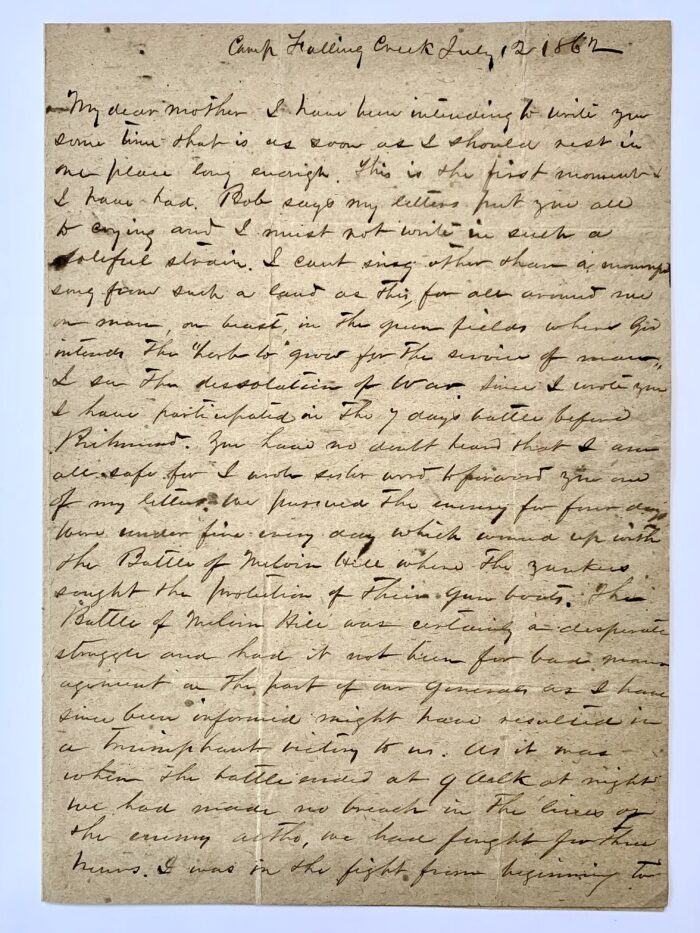 Camp Falling Creek July 12 1862
My dear mother I have been intending to write you
some time that is as soon as I should rest in
one place long enough. This is the first moment
I have had. Bob says my letters put you all
to crying and I must not write in such a
doleful strain. I cant sing other than a mournful
song from such a land as this, for all around me
on man, on beast, in the green fields where God
intends the "herb to grow for the service of man,"
I see the dessolation of War Since I wrote you
I have participated in the 7 days battle before
Richmond. You have no doubt heard that I am
all safe for I wrote sister word to forward you one
of my letters. We pursued the enemy for four days
were under fire every day which wound up with
the Battle of Melvin Hill where the yankees
sought the protection of their Gun boats. The
Battle of Melvin Hill was certainly a desperate
struggle and had it not been for bad man
agement on the part of our Generals as I have
since been informed might have resulted in
a triumphant victory to us. As it was
when the battle ended at 9 Oclk at night
we had made no breach in the lines of
the enemy altho, we had fought for three
hours. I was in the fight from beginning to